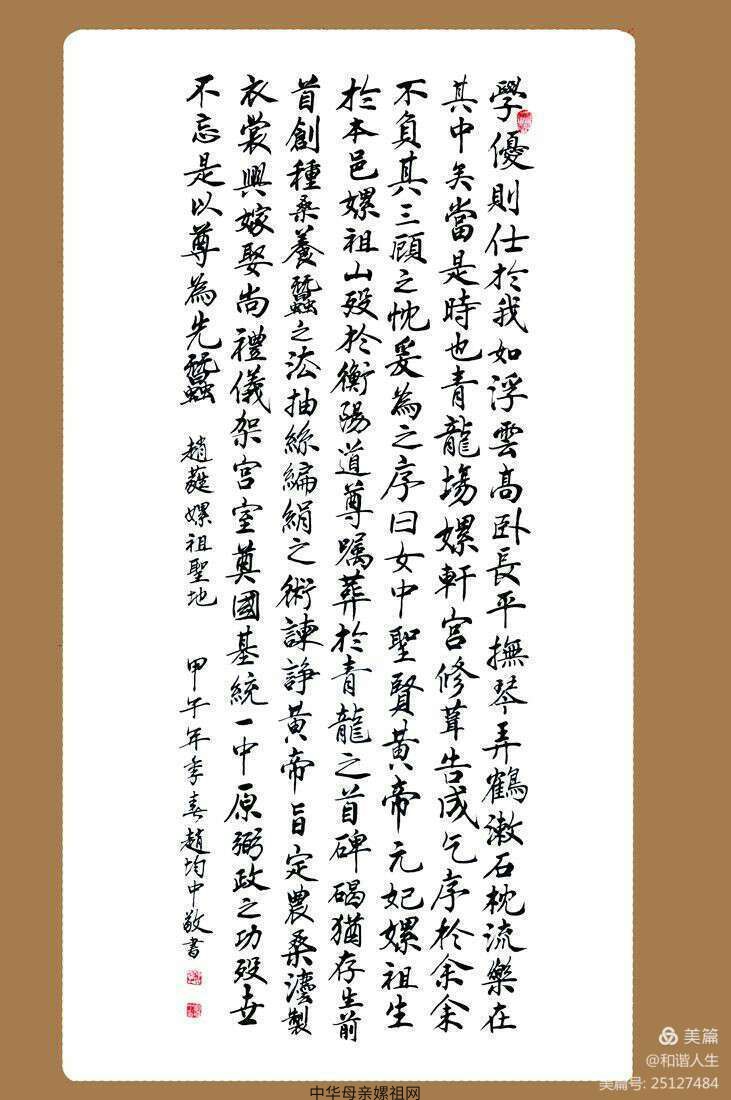 學優則仕於我如浮雲高卧長平撫琴弄鶴漱石枕流樂在
其中矣當是時也青龍場嫘軒宮修葺告成乞序於余余
不負其三顧之忱爰為之序曰女中聖賢黃帝元妃嫘祖生
於本邑嫘祖山歿於衡陽道尊嘱葬於青龍之首碑碣猶存生前
首創種桑養蠶之法抽絲編絹之術諫諍黃帝旨定農桑灋製
衣裳興嫁娶尚禮儀架宫室奠國基統一中原弼政之功歿世
不忘是以尊為先蠶
趙蕤嫘祖聖地
甲午年季春趙均中敬書
美篇
@和谐人生
美篇号: 25127484
中华母亲嫘祖网